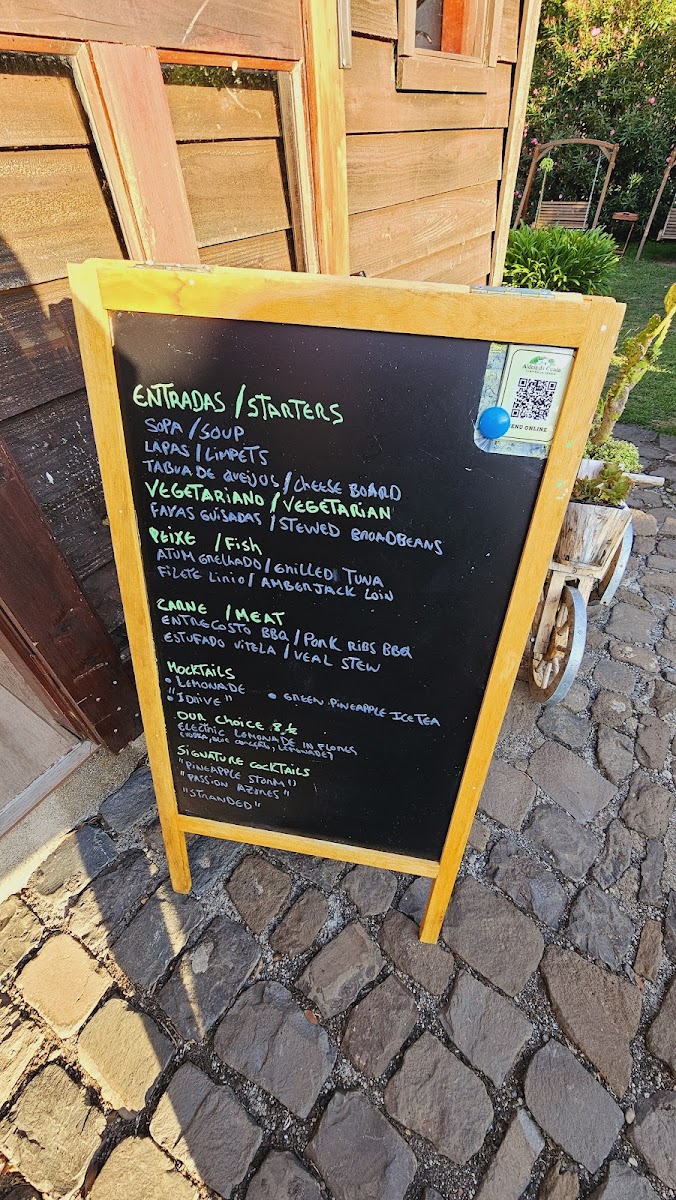 Aldeia da Cuada
MENU ONLINE
ENTRADAS / STARTERS
SOPA / SOUP
LAPAS / LIMPETS
TABUA DE QUEIJOS / CHEESE BOARD
VEGETARIANO / VEGETARIAN
FAVAS GUISADAS / STEWED BROADBEANS
PEIXE / FISH
ATUM GRELHADO / GRILLED TUNA
FILETE LIRIO / AMBERJACK LOIN
CARNE / MEAT
ENTRECOSTO BBQ / PORK RIBS BBQ
ESTUFADO VITELA / VEAL STEW
MOCKTAILS
• LEMONADE • GREEN PINEAPPLE ICE TEA
• "IDRIVE"
OUR CHOICE
ELECTRIC LEMONADE IN FLORES
SIGNATURE COCKTAILS
"PINEAPPLE STORM"
"PASSION AZORES"
"STRANDED"